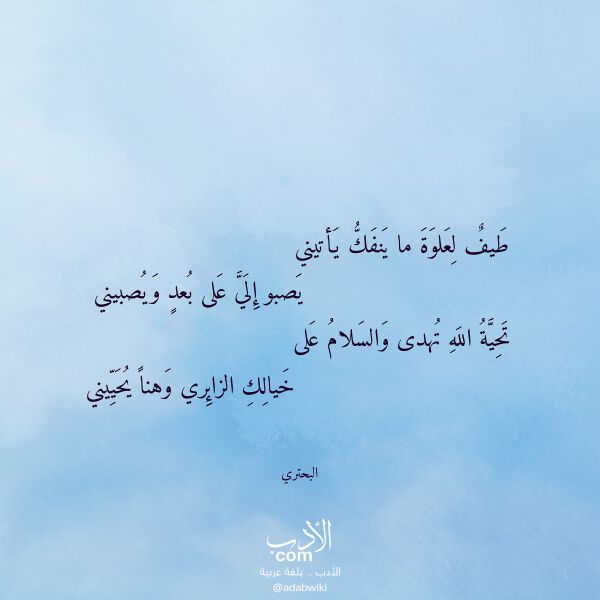 طَيفٌ لِعَلوَةَ ما يَنفَكُّ يَأتيني
يَصبو إِلَيَّ عَلى بُعدٍ وَيُصبيني
تَحِيَّةُ اللَهِ تُهدى وَالسَلامُ عَلى
خَيالِكِ الزائِري وَهناً يُحَيِّيني
البحتري
الأدب
com
الأدب .. بلغة عربية
@adabwiki